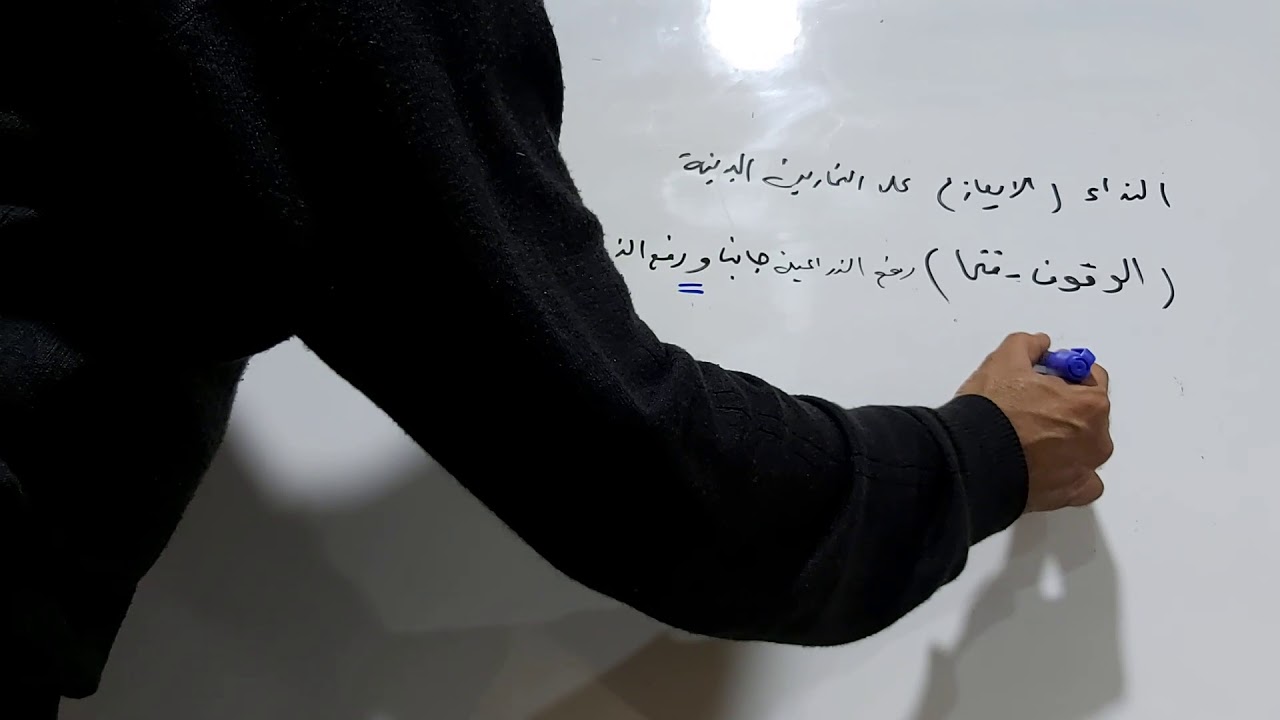 النداء (الايعاز) على التمارين البدنية
(الوقوف - فتحا) رفع الذراعين جانبا و رفع الذ